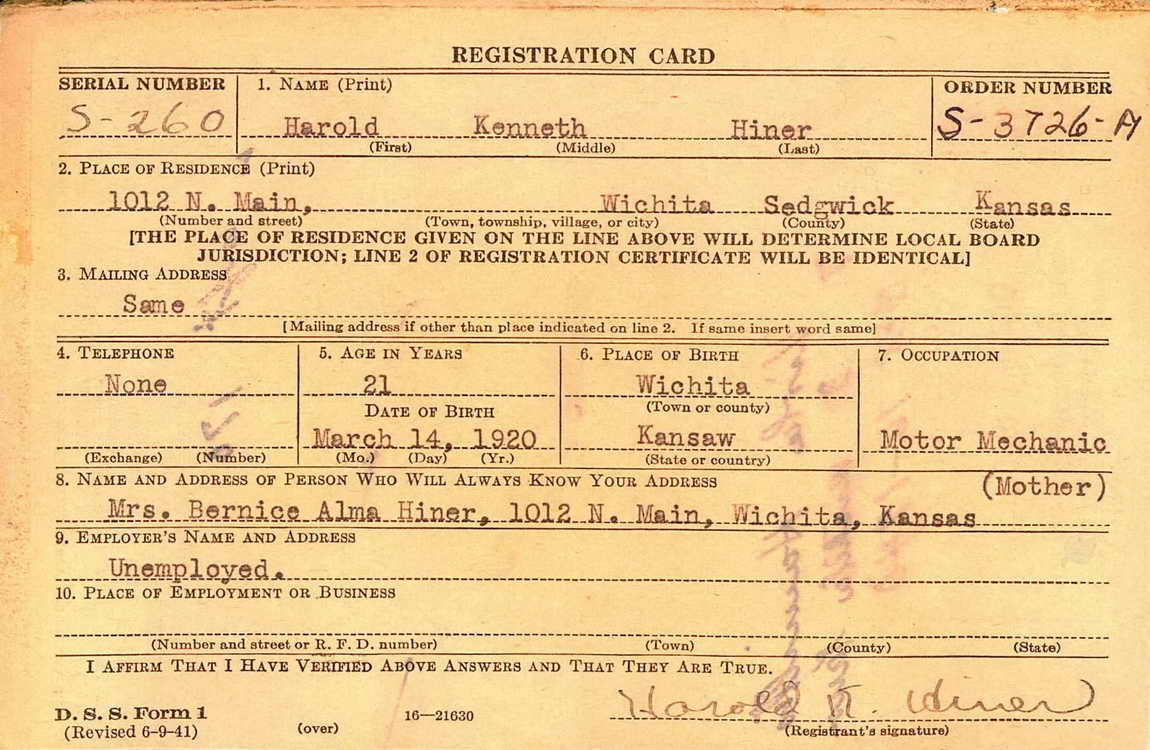 REGISTRATION CARD
SERIAL NUMBER 1. NAME (Print) ORDER NUMBER
S-260 Harold Kenneth Hiner S-3726-A
(First) (Middle) (Last)
2. PLACE OF RESIDENCE (Print)
1012 N. Main, Wichita Sedgwick Kansas
(Number and street) (Town, township, village, or city) (County) (State)
[THE PLACE OF RESIDENCE GIVEN ON THE LINE ABOVE WILL DETERMINE LOCAL BOARD
JURISDICTION; LINE 2 OF REGISTRATION CERTIFICATE WILL BE IDENTICAL]
3. MAILING ADDRESS
Same
[Mailing address if other than place indicated on line 2. If same insert word same]
4. TELEPHONE 5. AGE IN YEARS 6. PLACE OF BIRTH 7. OCCUPATION
None 21 Wichita
DATE OF BIRTH (Town or county)
March 14, 1920 Kansaw Motor Mechanic
(Exchange) (Number) (Mo.) (Day) (Yr.) (State or country)
8. NAME AND ADDRESS OF PERSON WHO WILL ALWAYS KNOW YOUR ADDRESS (Mother)
Mrs. Bernice Alma Hiner, 1012 N. Main, Wichita, Kansas
9. EMPLOYER'S NAME AND ADDRESS
Unemployed.
10. PLACE OF EMPLOYMENT OR BUSINESS
(Number and street or R. F. D. number) (Town) (County) (State)
I AFFIRM THAT I HAVE VERIFIED ABOVE ANSWERS AND THAT THEY ARE TRUE.
Harold K. Hiner
D. S. S. Form 1 16—21630
(Revised 6-9-41) (over) (Registrant's signature)